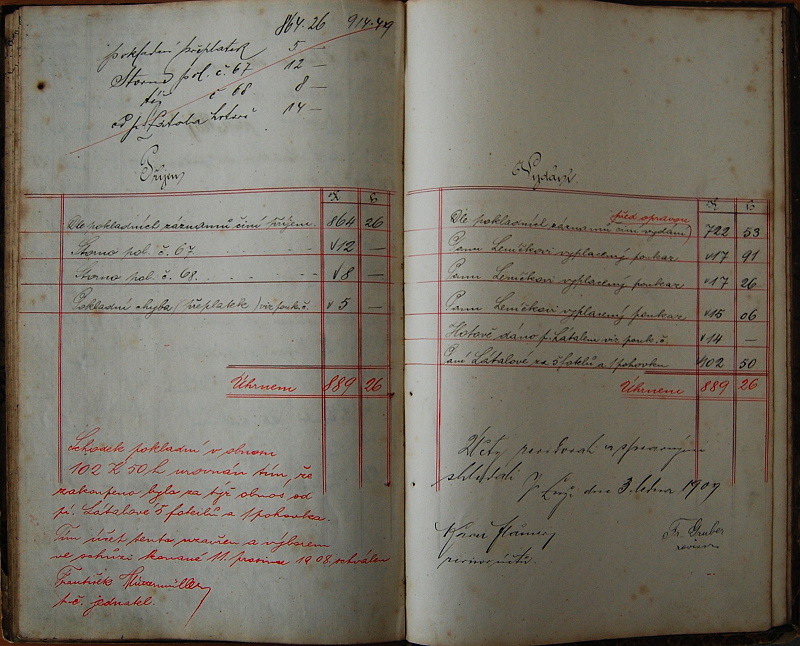 864.26 914.49
pokladní přeplatek 5 —
Storno pol. č. 67 12 —
č 68 8 —
14 —
Příjem
K h
Dle pokladních záznamů činí příjem 864 26
Storno pol. č. 67. 12 —
Storno pol. č. 68. 8 —
Pokladní chyba (přeplatek) viz pouk. č. 5 —
Úhrnem 889 26
Schodek pokladní v obnosu
102 K 50 h urovnán tím, že
zakoupeno bylo za týž obnos od
pí. Látalové 5 foteilů a 1 pohovka.
Tím účet tento uzavřen a výborem
ve schůzi konané 11. prosince 1908 schválen
František
t. č. jednatel.
Vydání
K h
před opravou
Dle pokladních záznamů činí vydání) 722 53
Panu Leničkovi vyplacený poukaz 17 91
Panu Leničkovi vyplacený poukaz 17 26
Panu Leničkovi vyplacený poukaz 15 06
Hotově dáno p. Látalem viz pouk. č. 14 —
Paní Látalové za 5 fotelů a 1 pohovku 102 50
Úhrnem 889 26
Účty a správnými
shledali
dne 3. ledna 1909
Fr. Gruber
revisor